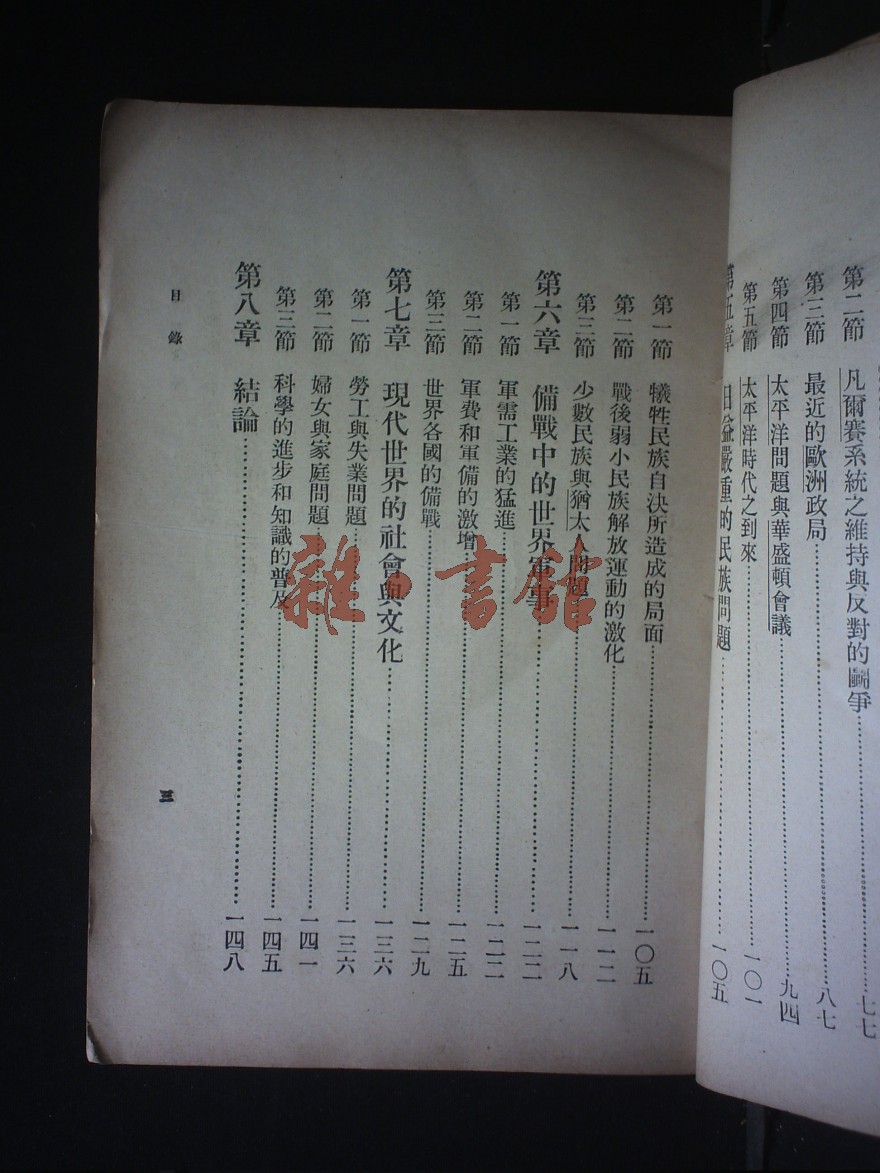 第二節　凡爾賽系統之維持與反對的鬬爭……七七
第三節　最近的歐洲政局……八七
第四節　太平洋問題與華盛頓會議……九四
第五節　太平洋時代之到來……一〇一
第五章　日益嚴重的民族問題……一〇五
第一節　犧牲民族自決所造成的局面……一〇五
第二節　戰後弱小民族解放運動的激化……一一二
第三節　少數民族與猶太人問題……一一八
第六章　備戰中的世界軍事……一二二
第一節　軍需工業的猛進……一二二
第二節　軍費和軍備的激增……一二五
第三節　世界各國的備戰……一二九
第七章　現代世界的社會與文化……一三六
第一節　勞工與失業問題……一三六
第二節　婦女與家庭問題……一四一
第三節　科學的進步和知識的普及……一四五
第八章　結論……一四八
目錄
三
雜書館